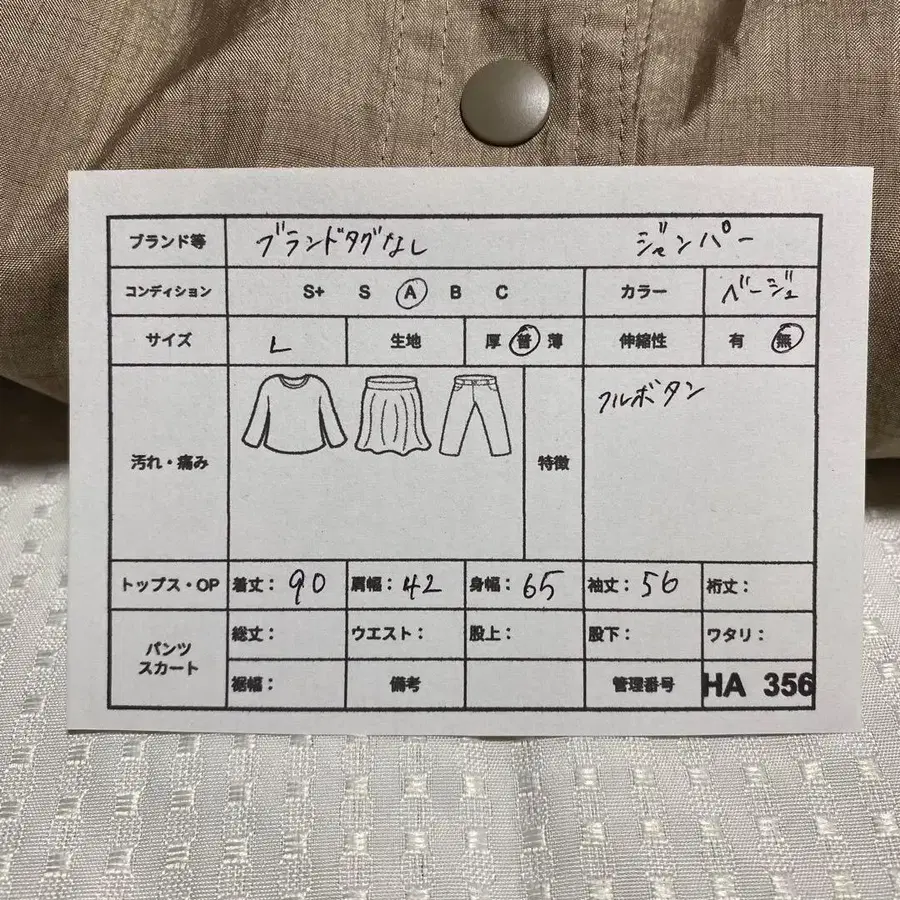 ブランド等 ブランドタグなし ジャンパー
コンディション S+ S A B C カラー ベージュ
サイズ L 生地 厚 普 薄 伸縮性 有 無
汚れ・痛み 特徴 フルボタン
トップス・OP 着丈：90 肩幅：42 身幅：65 袖丈：56 裄丈：
パンツ スカート 総丈： ウエスト： 股上： 股下： ワタリ：
裾幅： 備考 管理番号 HA 356